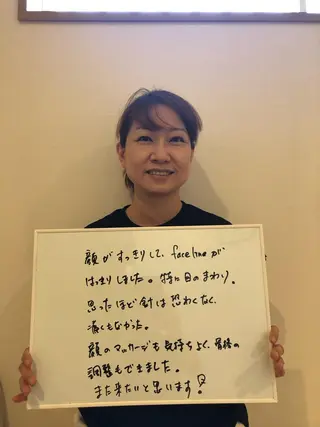 顔がすっきりして、face lineが
はっきりしました。特に目のまわり。
思ったほど針は恐わくなく、
痛くもなかった。
顔のマッサージも気持ちよく、骨格の
調整もできました。
また来たいと思います！